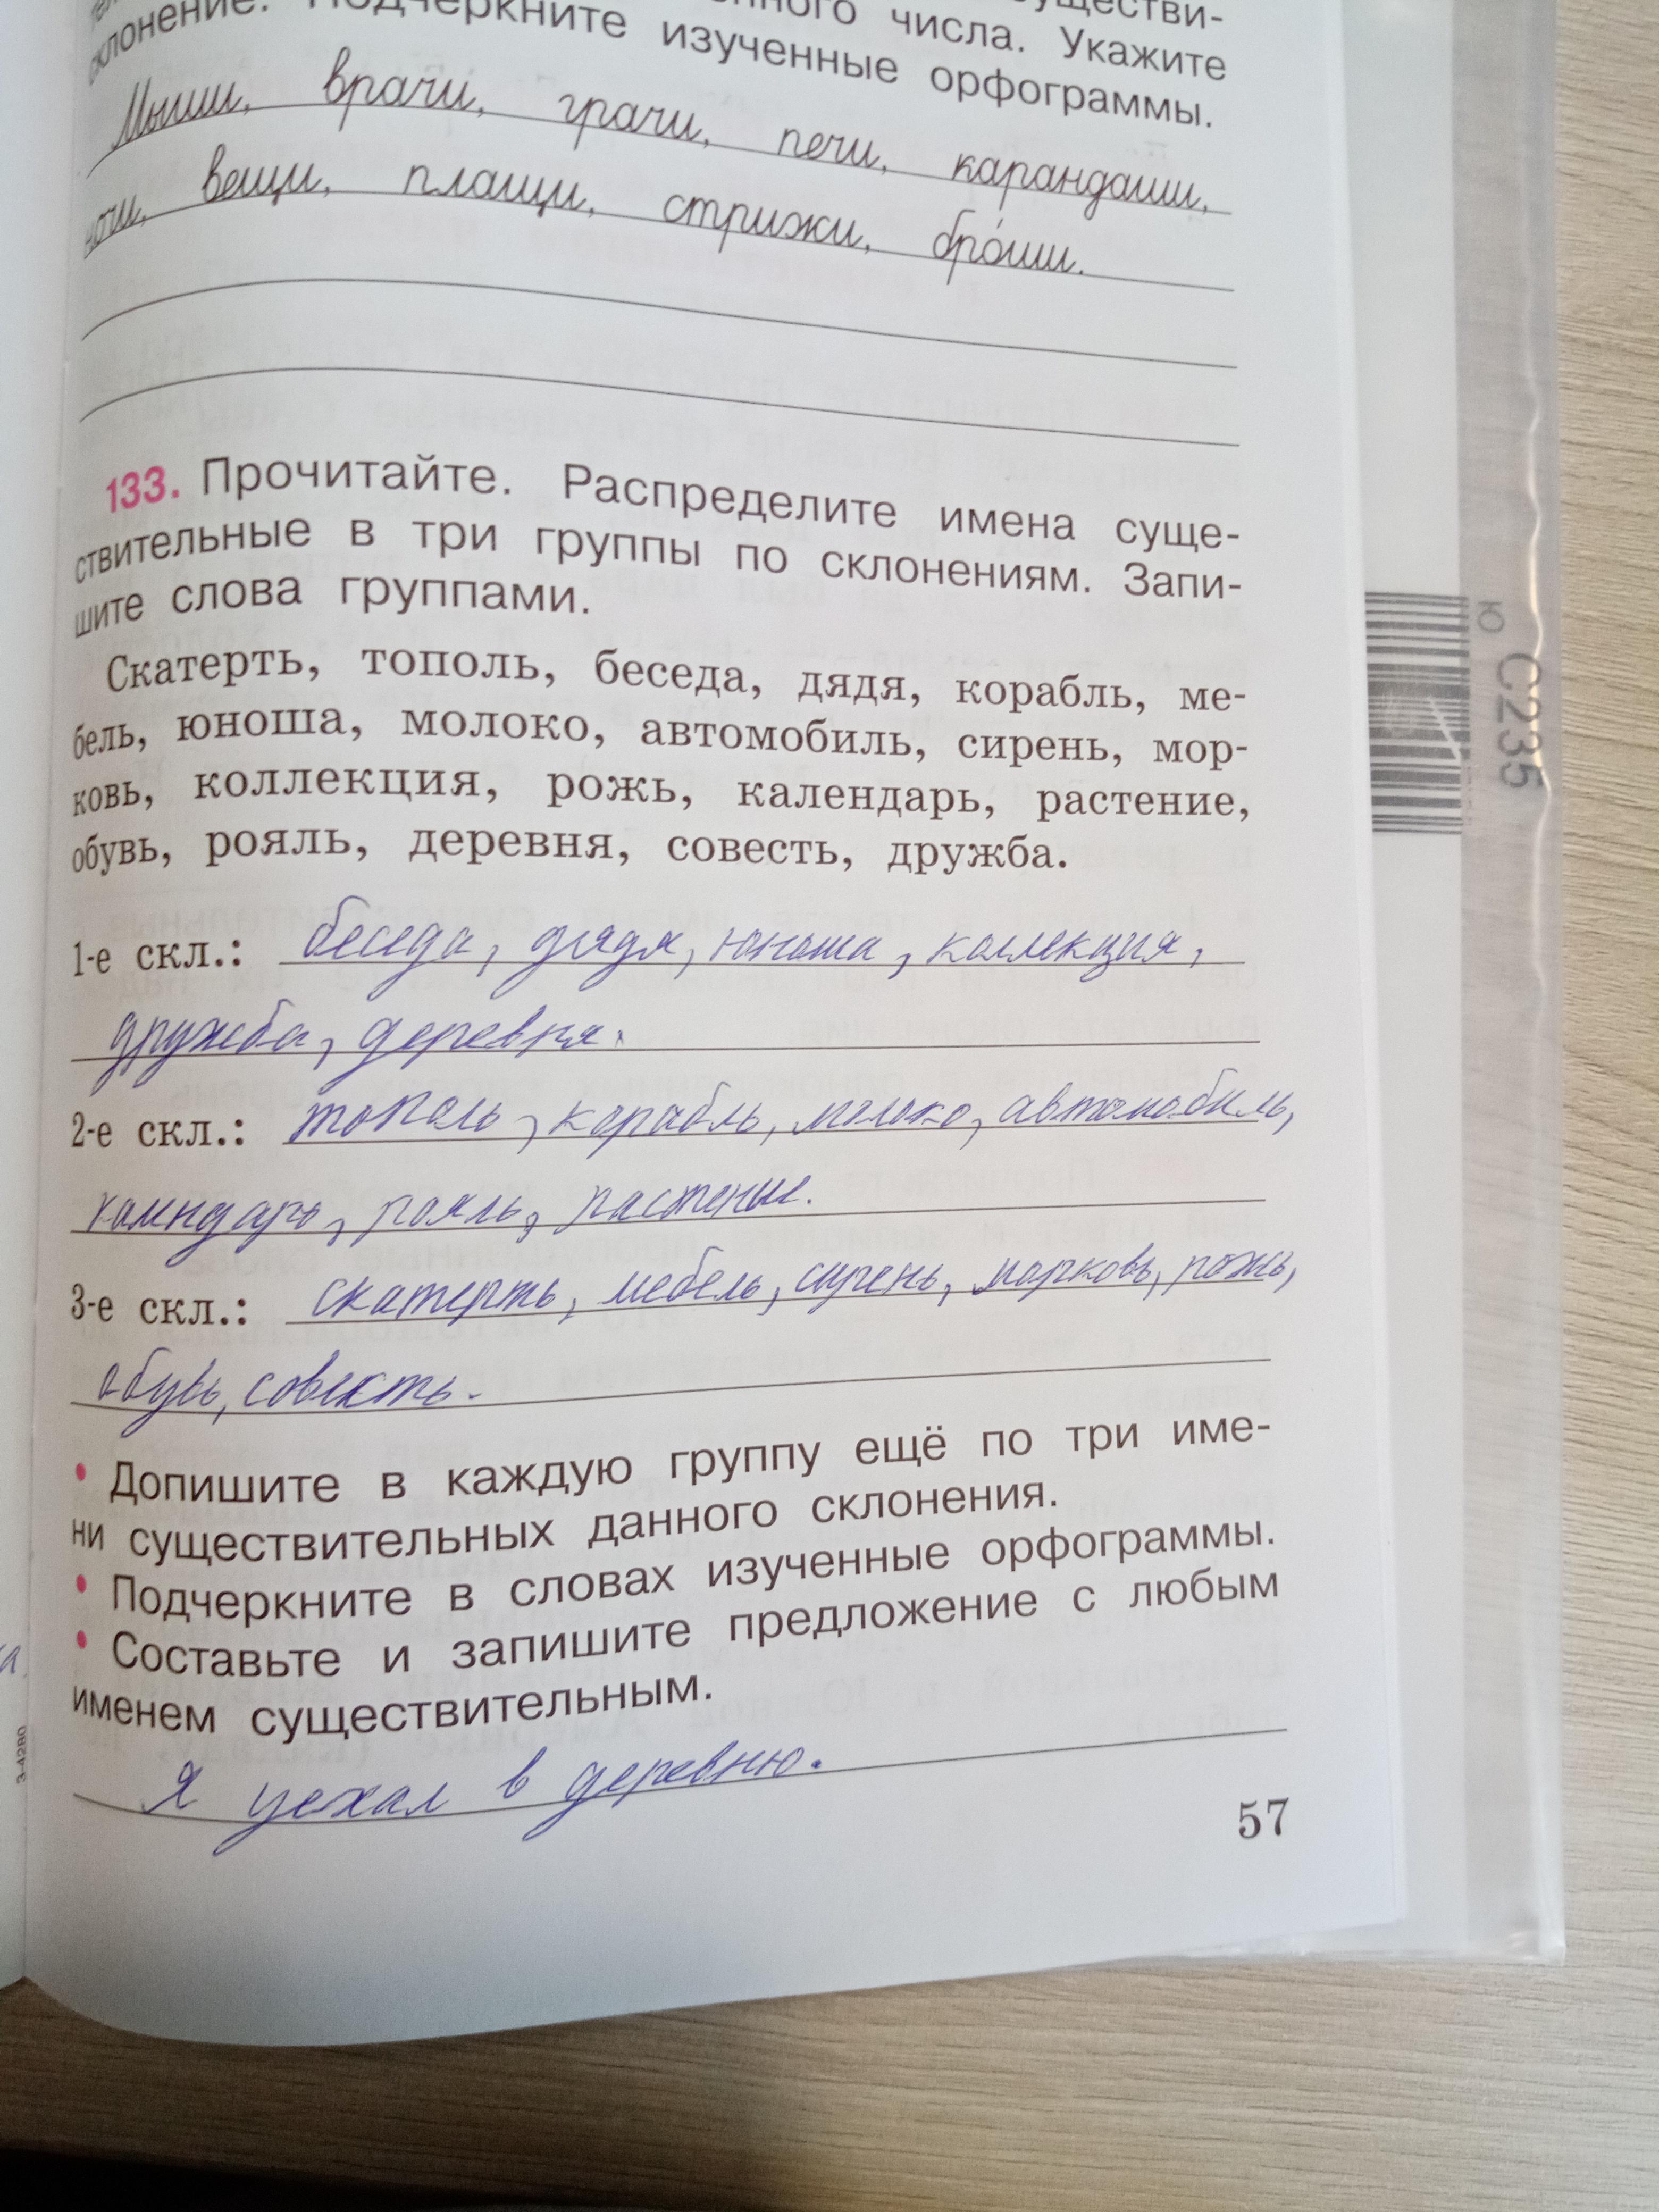 числа. Укажите
склонение. Подчеркните изученные орфограммы.
Мыши, врачи, грачи, печи, карандаши,
ночи, вещи, плащи, стрижи, бро́ши.
133. Прочитайте. Распределите имена суще-
ствительные в три группы по склонениям. Запи-
шите слова группами.
Скатерть, тополь, беседа, дядя, корабль, ме-
бель, юноша, молоко, автомобиль, сирень, мор-
ковь, коллекция, рожь, календарь, растение,
обувь, рояль, деревня, совесть, дружба.
1-е скл.: беседа, дядя, юноша, коллекция,
дружба, деревня.
2-е скл.: тополь, корабль, молоко, автомобиль,
рояль, растение.
3-е скл.: скатерть, мебель, сирень, морковь, рожь,
обувь, совесть.
• Допишите в каждую группу ещё по три име-
ни существительных данного склонения.
• Подчеркните в словах изученные орфограммы.
• Составьте и запишите предложение с любым
именем существительным.
Я уехал в деревню.
57
3-4280
Ю С235